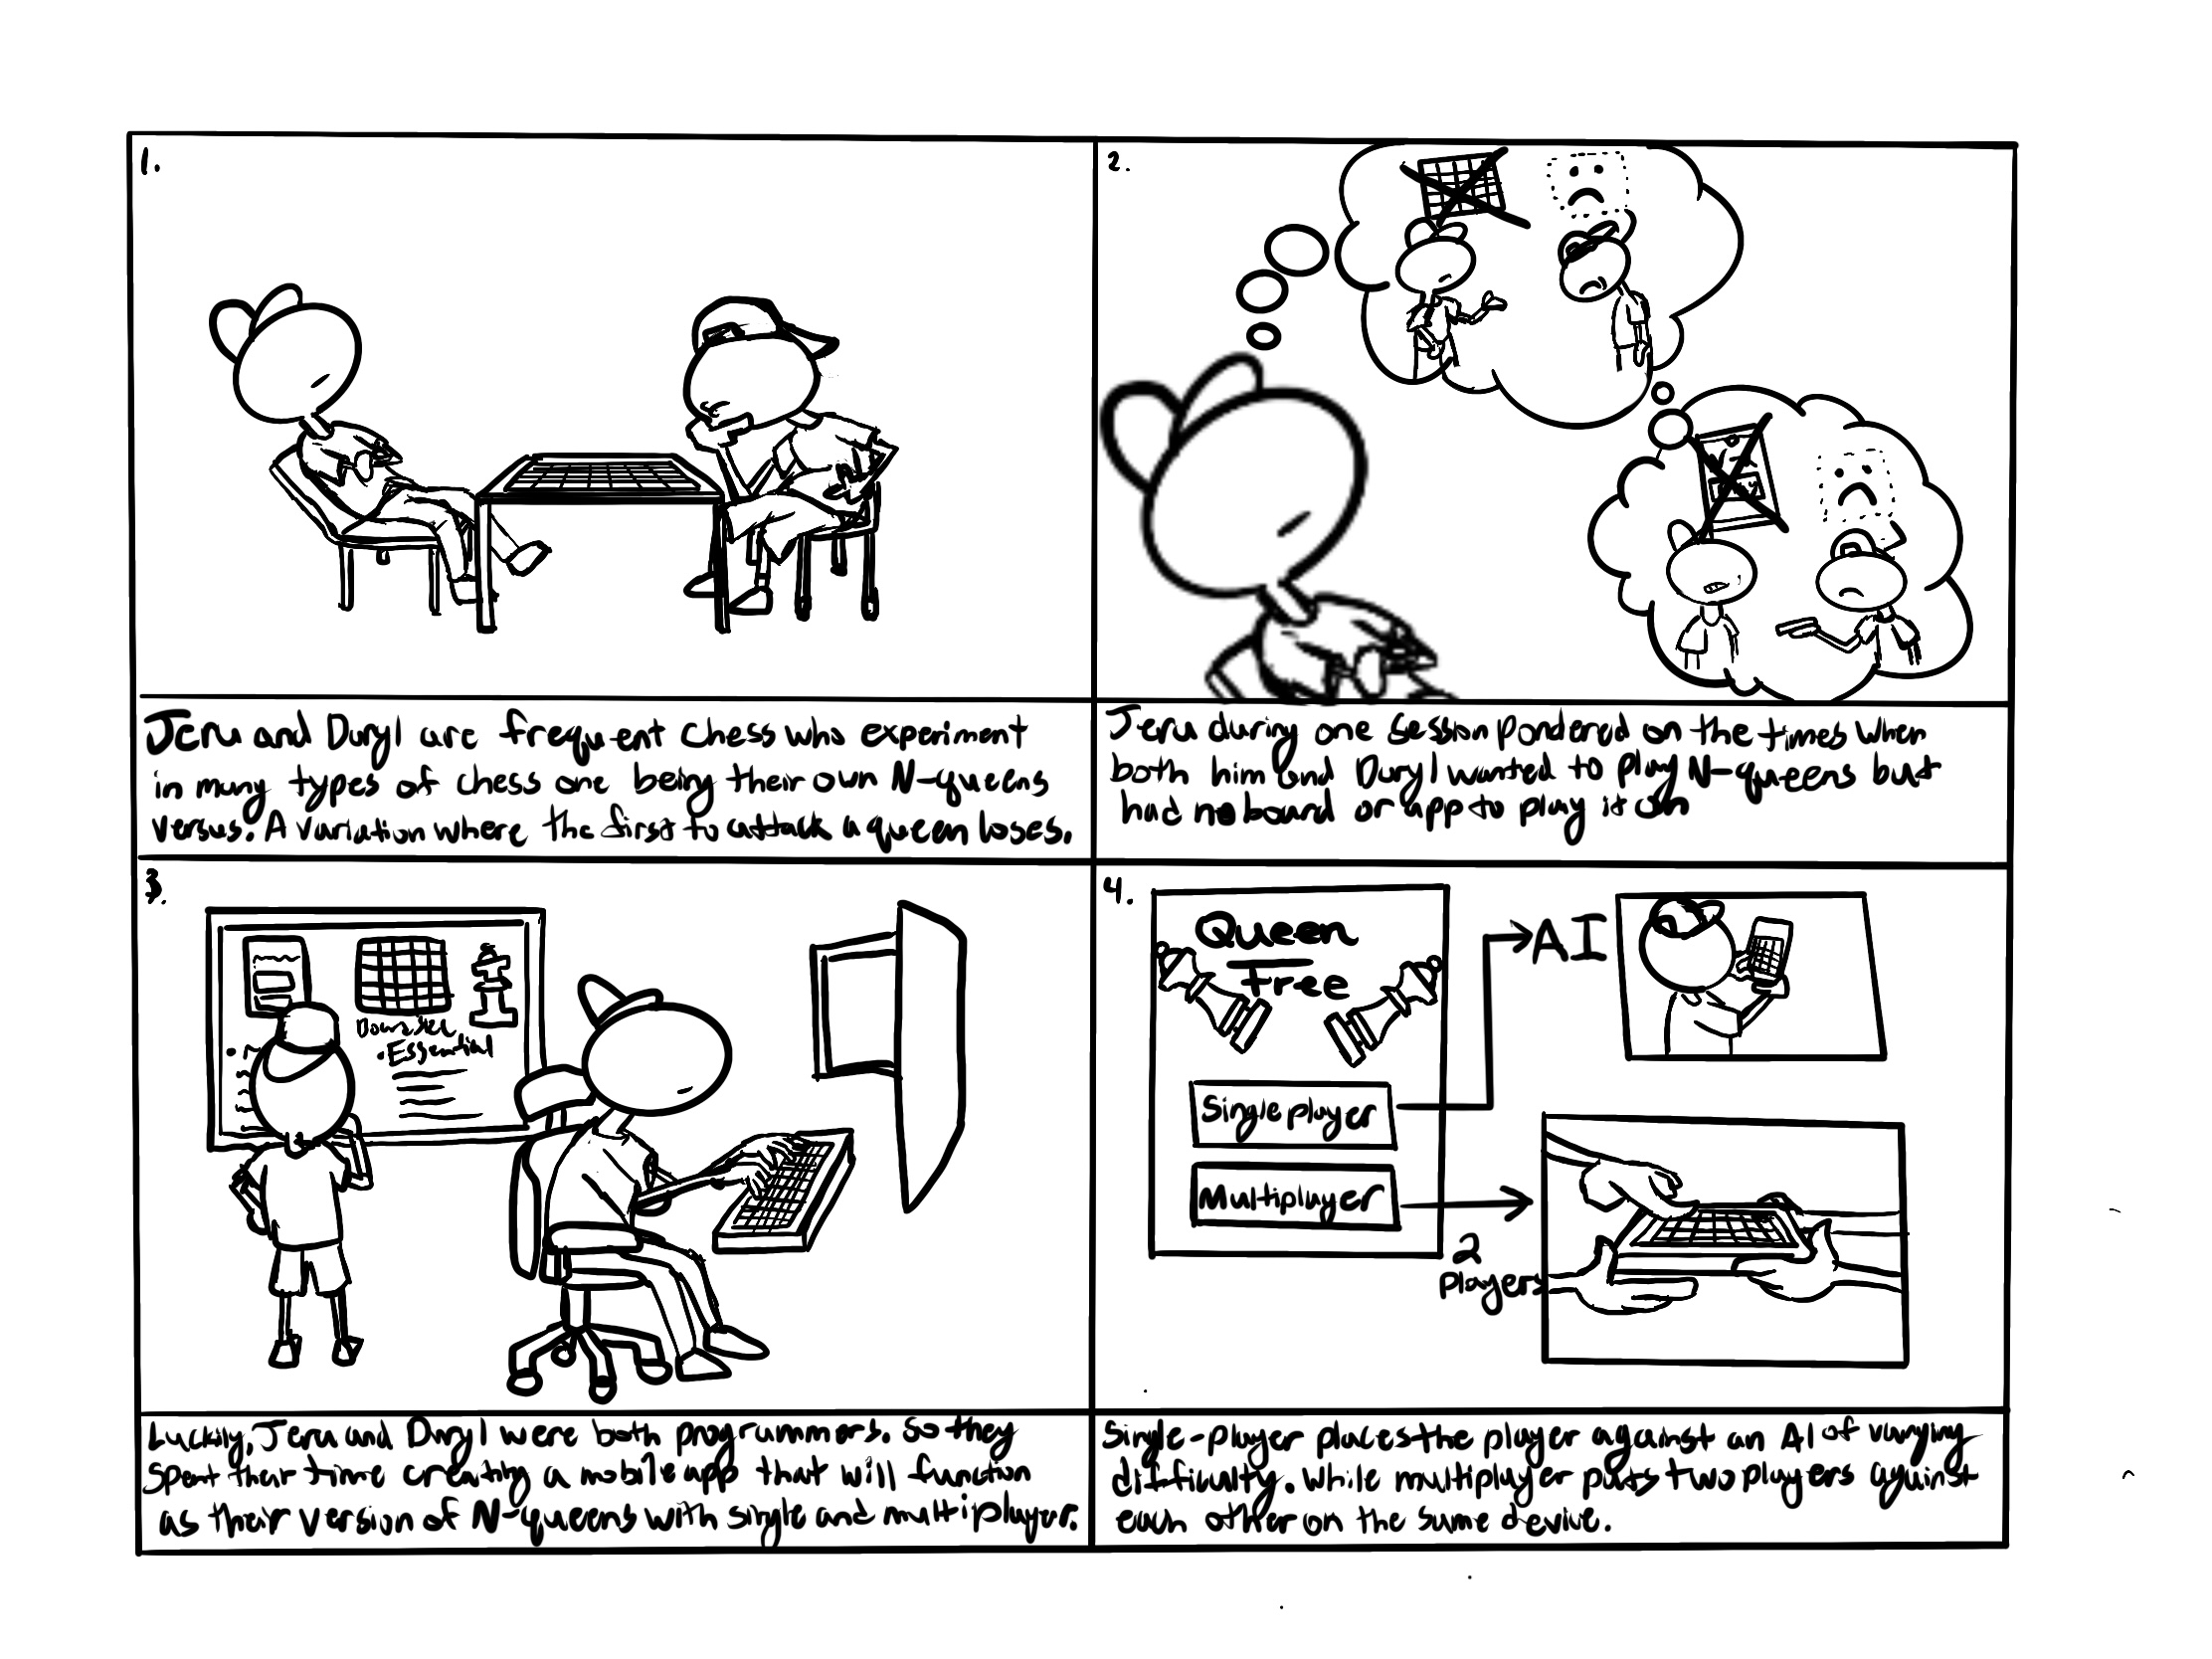 1.
Jeru and Daryl are frequent chess who experiment
in many types of chess one being their own N-queens
versus. A variation where the first to attack a queen loses.
2.
Jeru during one session pondered on the times when
both him and Daryl wanted to play N-queens but
had no board or app to play it on
3.
Essential
Luckily, Jeru and Daryl were both programmers. So they
spent their time creating a mobile app that will function
as their version of N-queens with single and multiplayer.
4.
Queen
Free
Single player
Multiplayer
AI
2
Players
Single-player places the player against an AI of varying
difficulty. While multiplayer puts two players against
each other on the same device.